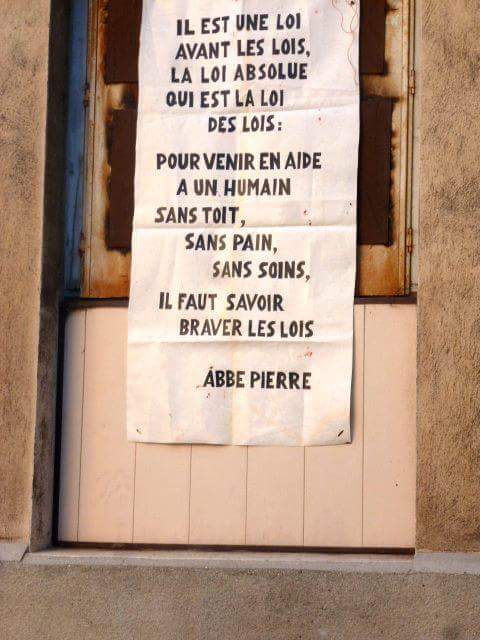 IL EST UNE LOI
AVANT LES LOIS,
LA LOI ABSOLUE
QUI EST LA LOI
DES LOIS:
POUR VENIR EN AIDE
A UN HUMAIN
SANS TOIT,
SANS PAIN,
SANS SOINS,
IL FAUT SAVOIR
BRAVER LES LOIS
ABBE PIERRE